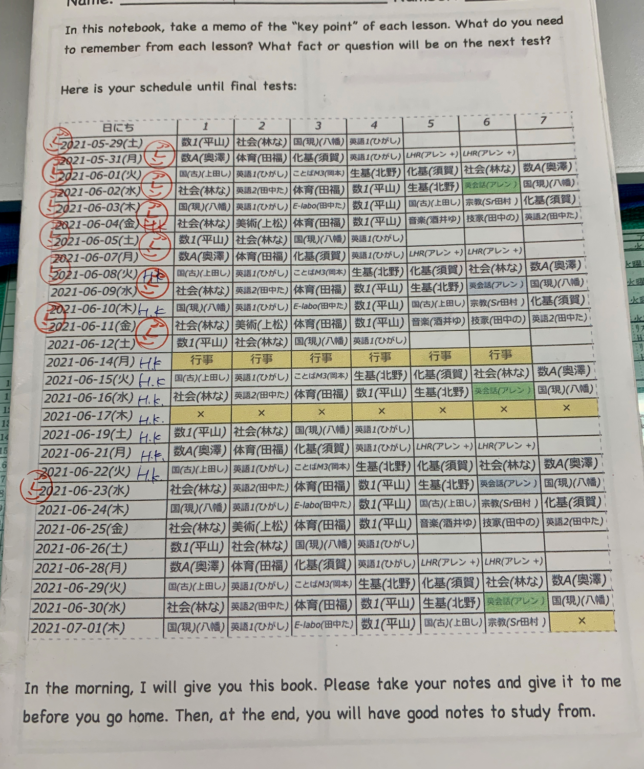 Name:
In this notebook, take a memo of the “key point” of each lesson. What do you need
to remember from each lesson? What fact or question will be on the next test?
Here is your schedule until final tests:
日にち 1 2 3 4 5 6 7
2021-05-29(土) 数1(平山) 社会(林な) 国(現)(八幡) 英語1(ひがし)
2021-05-31(月) 数A(奥澤) 体育(田福) 化基(須賀) 英語1(ひがし) LHR(アレン +) LHR(アレン +)
2021-06-01(火) 国(古)(上田し) 英語1(ひがし) ことばM3(岡本) 生基(北野) 化基(須賀) 社会(林な) 数A(奥澤)
2021-06-02(水) 社会(林な) 英語2(田中た) 体育(田福) 数1(平山) 生基(北野) 英会話(アレン) 国(現)(八幡)
2021-06-03(木) 国(現)(八幡) 英語1(ひがし) E-labo(田中た) 数1(平山) 国(古)(上田し) 宗教(Sr田村) 化基(須賀)
2021-06-04(金) 社会(林な) 美術(上松) 体育(田福) 数1(平山) 音楽(酒井ゆ) 技家(田中の) 英語2(田中た)
2021-06-05(土) 数1(平山) 社会(林な) 国(現)(八幡) 英語1(ひがし)
2021-06-07(月) 数A(奥澤) 体育(田福) 化基(須賀) 英語1(ひがし) LHR(アレン +) LHR(アレン +)
2021-06-08(火) H.K 国(古)(上田し) 英語1(ひがし) ことばM3(岡本) 生基(北野) 化基(須賀) 社会(林な) 数A(奥澤)
2021-06-09(水) 社会(林な) 英語2(田中た) 体育(田福) 数1(平山) 生基(北野) 英会話(アレン) 国(現)(八幡)
2021-06-10(木) H.K 国(現)(八幡) 英語1(ひがし) E-labo(田中た) 数1(平山) 国(古)(上田し) 宗教(Sr田村) 化基(須賀)
2021-06-11(金) 社会(林な) 美術(上松) 体育(田福) 数1(平山) 音楽(酒井ゆ) 技家(田中の) 英語2(田中た)
2021-06-12(土) 数1(平山) 社会(林な) 国(現)(八幡) 英語1(ひがし)
2021-06-14(月) H.K 行事 行事 行事 行事 行事 行事
2021-06-15(火) H.K 国(古)(上田し) 英語1(ひがし) ことばM3(岡本) 生基(北野) 化基(須賀) 社会(林な) 数A(奥澤)
2021-06-16(水) H.K 社会(林な) 英語2(田中た) 体育(田福) 数1(平山) 生基(北野) 英会話(アレン) 国(現)(八幡)
2021-06-17(木) H.K. × × × × × × ×
2021-06-19(土) H.K 数1(平山) 社会(林な) 国(現)(八幡) 英語1(ひがし)
2021-06-21(月) H.K. 数A(奥澤) 体育(田福) 化基(須賀) 英語1(ひがし) LHR(アレン +) LHR(アレン +)
2021-06-22(火) H.K 国(古)(上田し) 英語1(ひがし) ことばM3(岡本) 生基(北野) 化基(須賀) 社会(林な) 数A(奥澤)
2021-06-23(水) 社会(林な) 英語2(田中た) 体育(田福) 数1(平山) 生基(北野) 英会話(アレン) 国(現)(八幡)
2021-06-24(木) 国(現)(八幡) 英語1(ひがし) E-labo(田中た) 数1(平山) 国(古)(上田し) 宗教(Sr田村) 化基(須賀)
2021-06-25(金) 社会(林な) 美術(上松) 体育(田福) 数1(平山) 音楽(酒井ゆ) 技家(田中の) 英語2(田中た)
2021-06-26(土) 数1(平山) 社会(林な) 国(現)(八幡) 英語1(ひがし)
2021-06-28(月) 数A(奥澤) 体育(田福) 化基(須賀) 英語1(ひがし) LHR(アレン +) LHR(アレン +)
2021-06-29(火) 国(古)(上田し) 英語1(ひがし) ことばM3(岡本) 生基(北野) 化基(須賀) 社会(林な) 数A(奥澤)
2021-06-30(水) 社会(林な) 英語2(田中た) 体育(田福) 数1(平山) 生基(北野) 英会話(アレン) 国(現)(八幡)
2021-07-01(木) 国(現)(八幡) 英語1(ひがし) E-labo(田中た) 数1(平山) 国(古)(上田し) 宗教(Sr田村) ×
In the morning, I will give you this book. Please take your notes and give it to me
before you go home. Then, at the end, you will have good notes to study from.